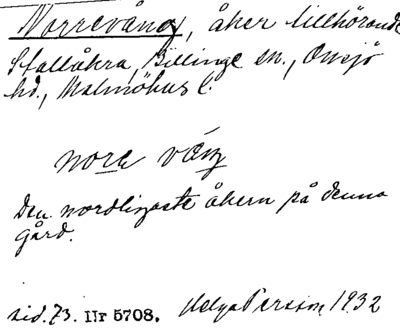 Norrevång, åker tillhörande
Stallåkra, Billinge sn., Onsjö
hd., Malmöhus l.
nore våŋ
Den nordligaste åkern på denna
gård.
sid. 73. Nr 5708. Helga Persson 1932